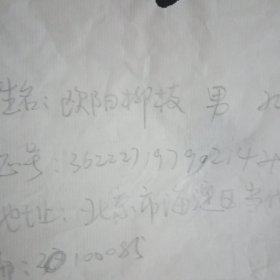 姓名：欧阳柳枝 男 
号：36222719790214
地址：北京市海淀区
：20100085